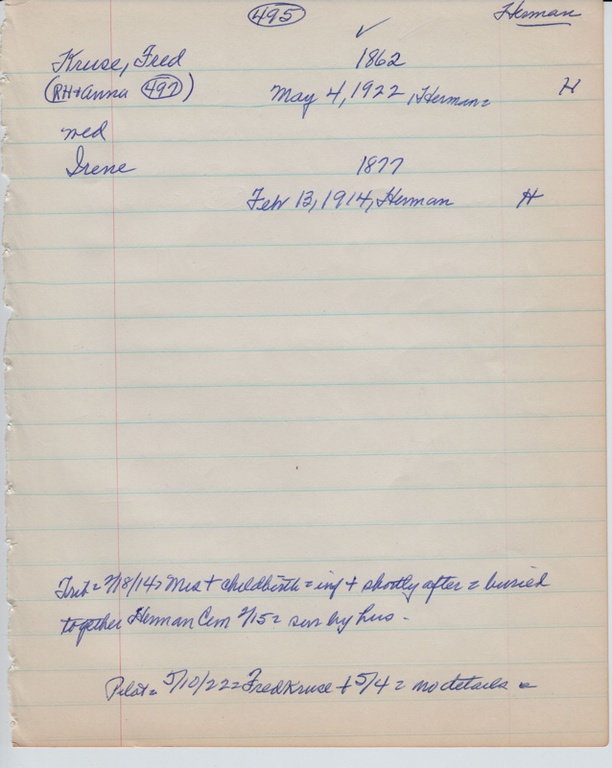 495
Herman
Kruse, Fred 1862
(RH+Anna 497) May 4, 1922, Herman= H
wed
Irene 1877
Feb 13, 1914, Herman H
Trib= 2/18/14= Mrs + childbirth = inf + shortly after = buried
together Herman Cem 2/15= surv by hus -
Pilot= 5/10/22= Fred Kruse + 5/4 = no details =